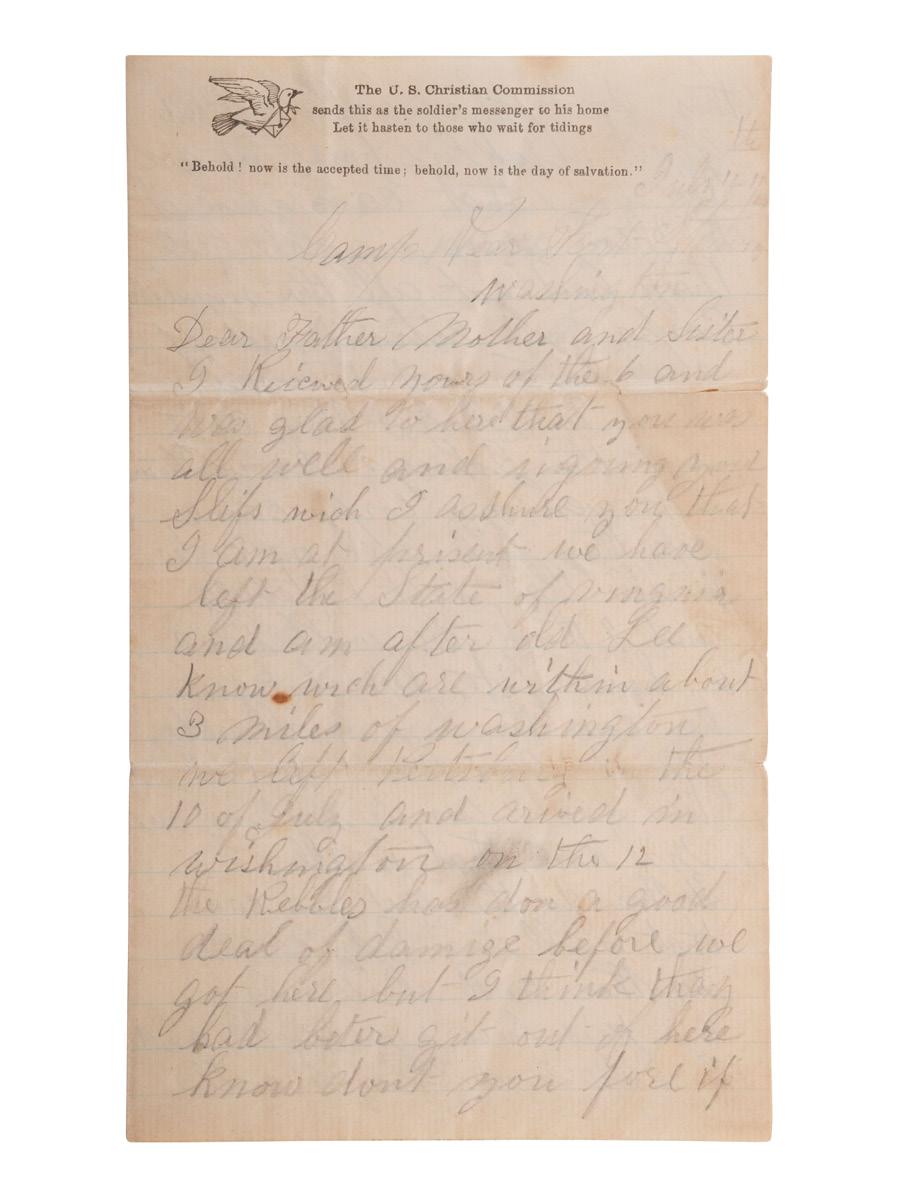 The U. S. Christian Commission
sends this as the soldier's messenger to his home
Let it hasten to those who wait for tidings
"Behold! now is the accepted time; behold, now is the day of salvation."
July 12
Camp Near Fort
Washington
Dear Father Mother and Sister
I Reicved yours of the 6 and
was glad to her that you was
all well and injoying your
Slefs wich I asshure you that
I am at prisent we have
left the State of virginia
and am after old Lee
know wich are within about
3 miles of washington
we left the
10 of July and arived in
wishington on the 12
the Rebbles has don a good
deal of damige before we
got here but I think thay
had beter git out of here
know dont you fore if